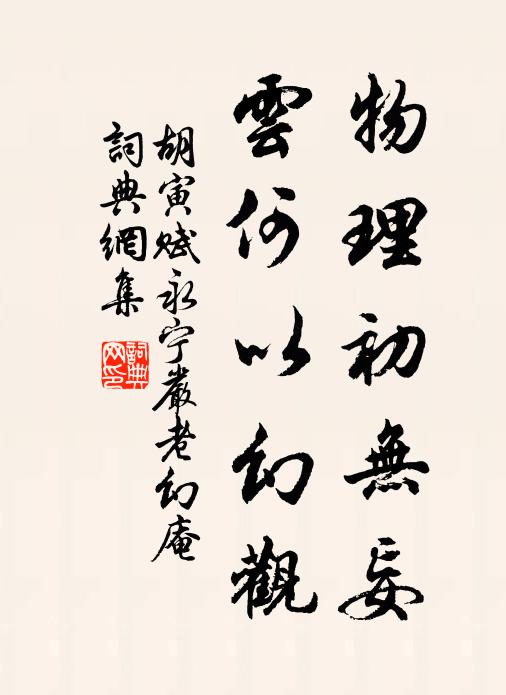 物理初無妄
雲何以幻觀
胡寅賦永宁嚴老幻庵
詞典網集
詞典网印